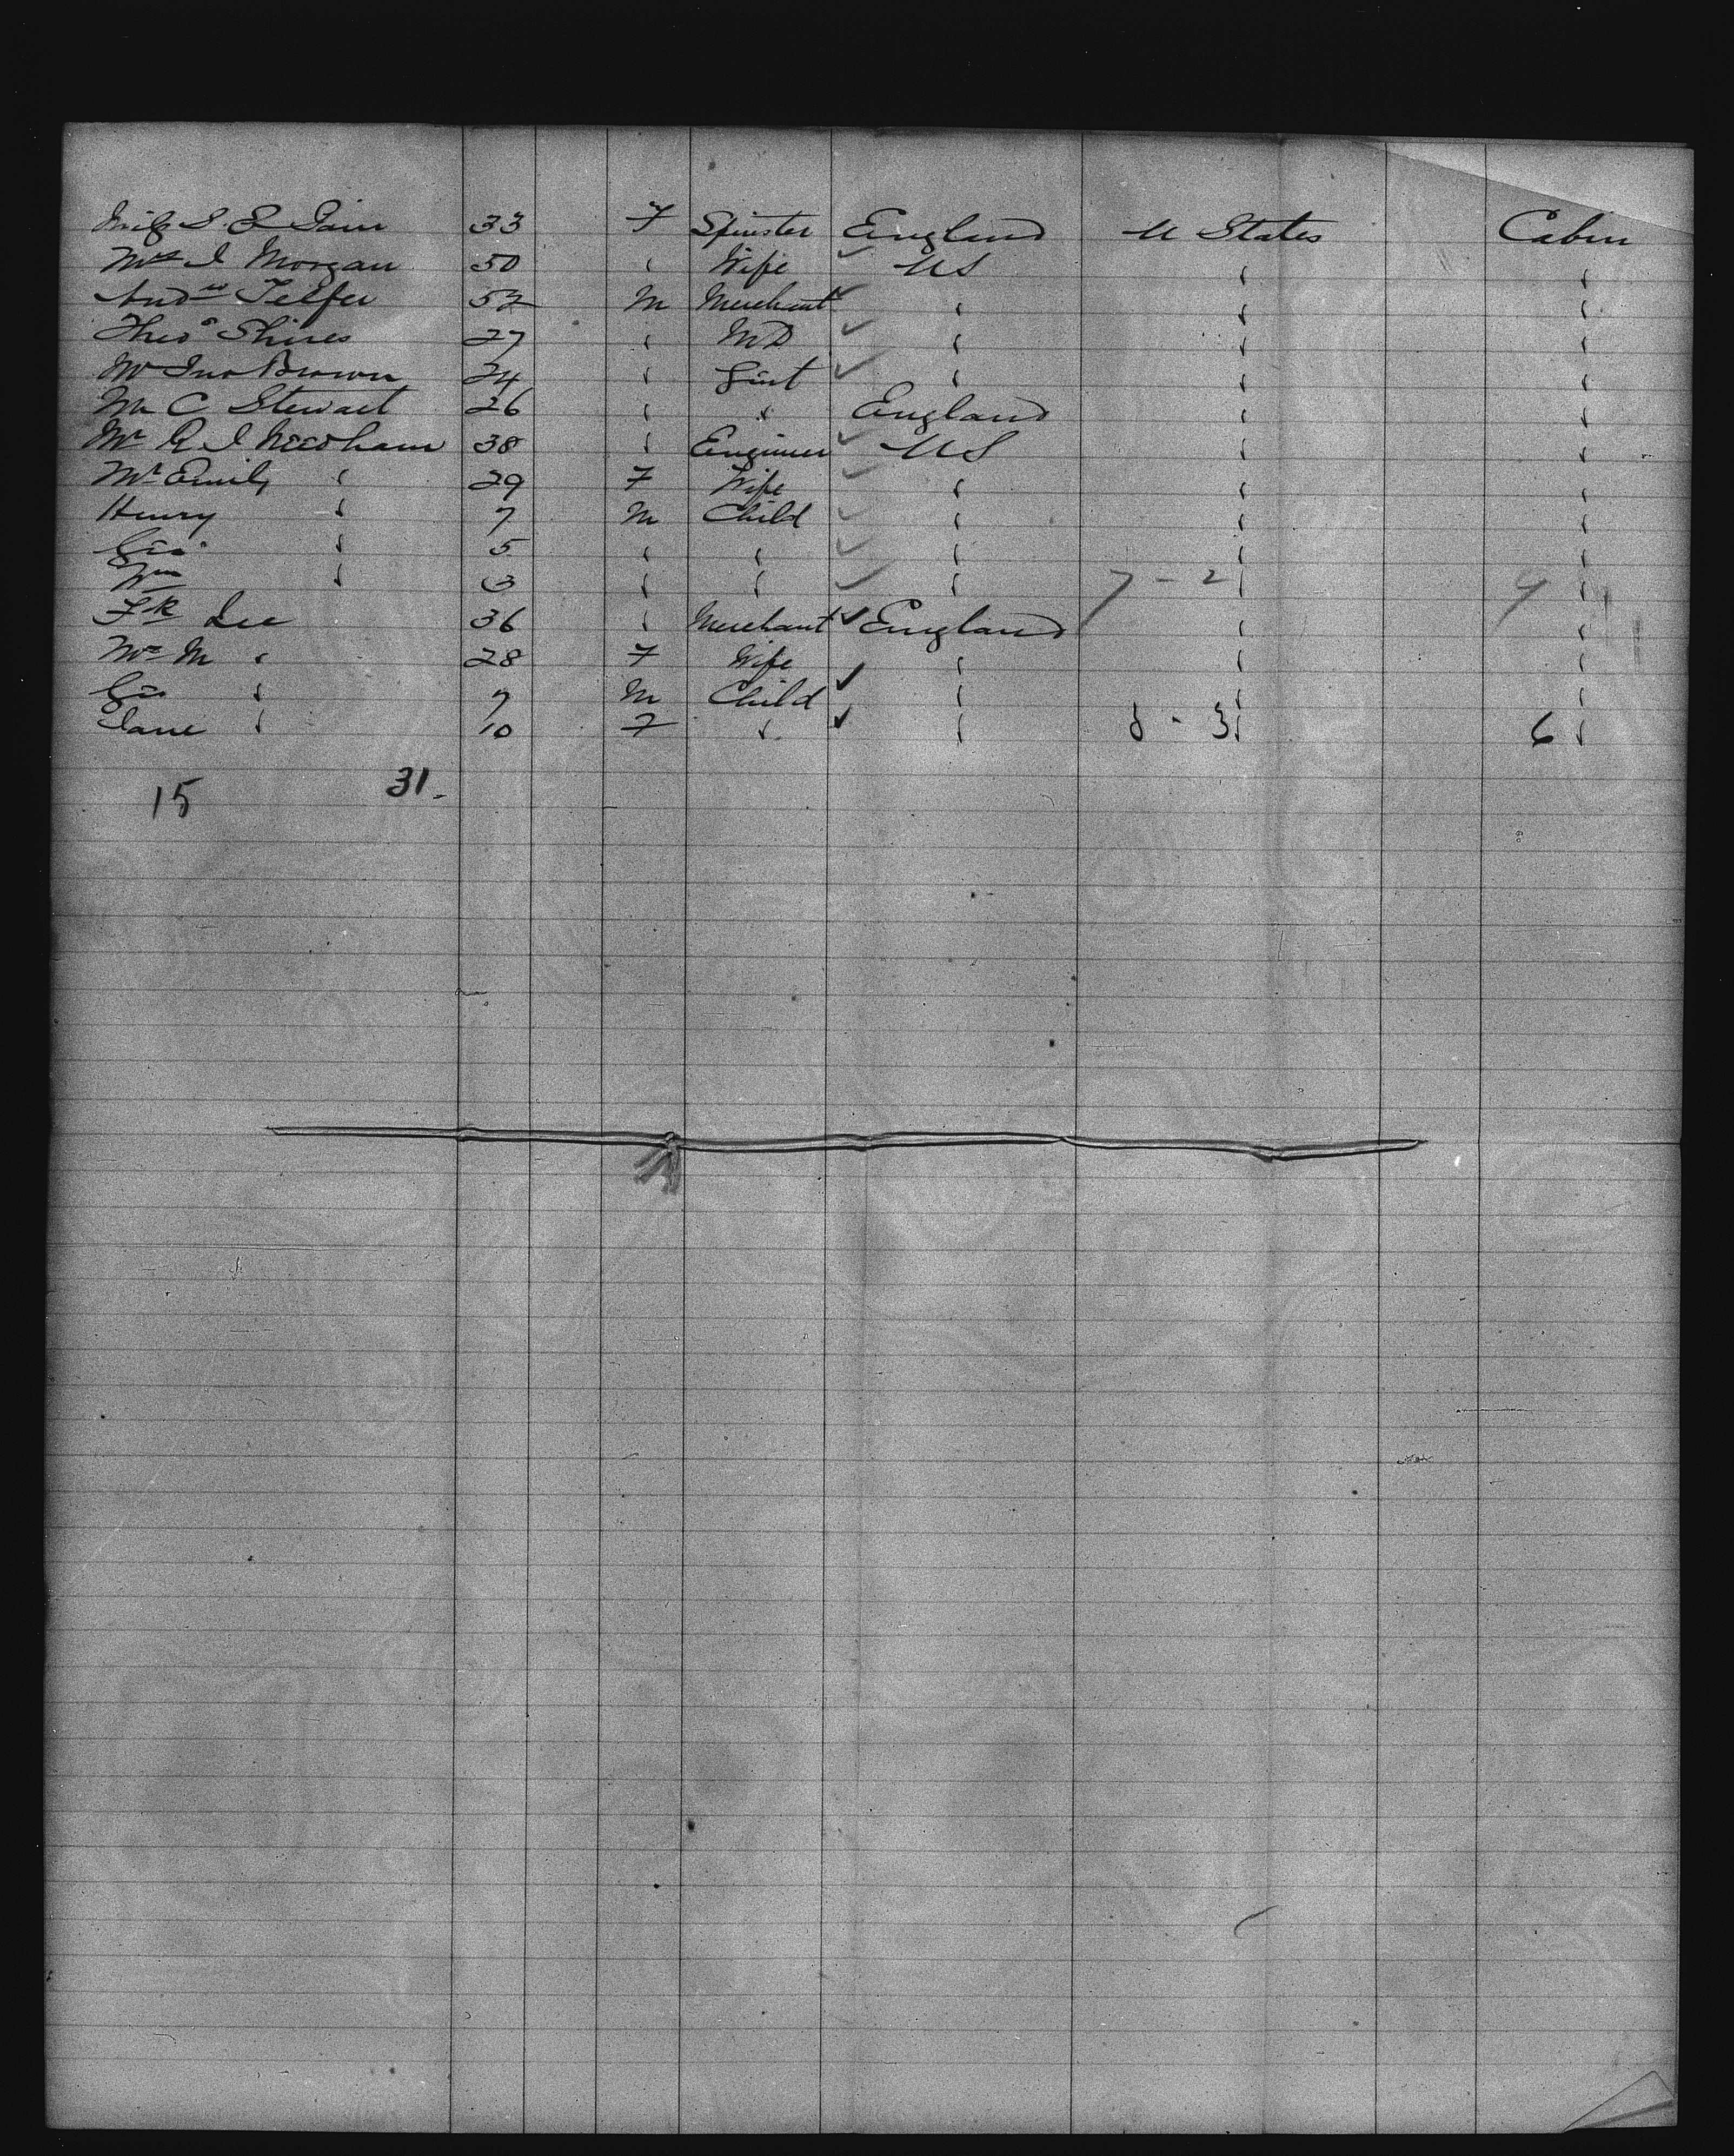 Miss S. E. Pain 33 F Spinster England U States Cabin
Mrs I Morgan 50 " Wife US " "
Andw Telfer 52 M Merchant " " "
Theos Shires 27 " MD " " "
Mr Jno Brown 24 " Gint " " "
Mr C Stewart 26 " " England " "
Mr R. J Needham 38 " Engineer US " "
Mrs Emily " 29 F Wife " " "
Henry " 7 M Child " " "
Geo. " 5 " " " " "
Wm " 3 " " " 7 - 2 " 4 "
Fk Lee 36 " Merchant England " "
Mrs M " 28 F Wife " " "
Geo " 7 M Child " " "
Jane " 10 F " " 8 - 3 " 6 "
15 31.